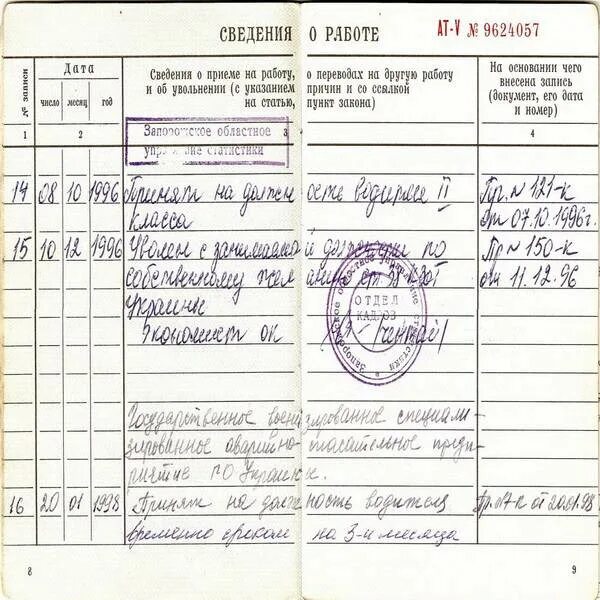 СВЕДЕНИЯ О РАБОТЕ
АТ-V № 9624057
№ записи
Дата
число месяц год
Сведения о приеме на работу, о переводах на другую работу
и об увольнении (с указанием причин и со ссылкой
на статью, пункт закона)
На основании чего
внесена запись
(документ, его дата
и номер)
1 2 3 4
Запорожское областное
управление статистики
14 08 10 1996 Принят на должность водителя II Пр. № 121-к
класса от 07.10.1996г.
15 10 12 1996 Уволен с занимаемой должности по Пр № 150-к
собственному желанию ст. 38 КЗоТ от 11.12.96
Украины
Экономист ок
Запорожское областное управление статистики
ОТДЕЛ
КАДРОВ
Государственное военизированное специали-
зированное аварийно-спасательное предп-
риятие ГО Украины.
16 20 01 1998 Принят на должность водителя Пр. №7-к от 20.01.98
временно сроком на 3-и месяца
8
9